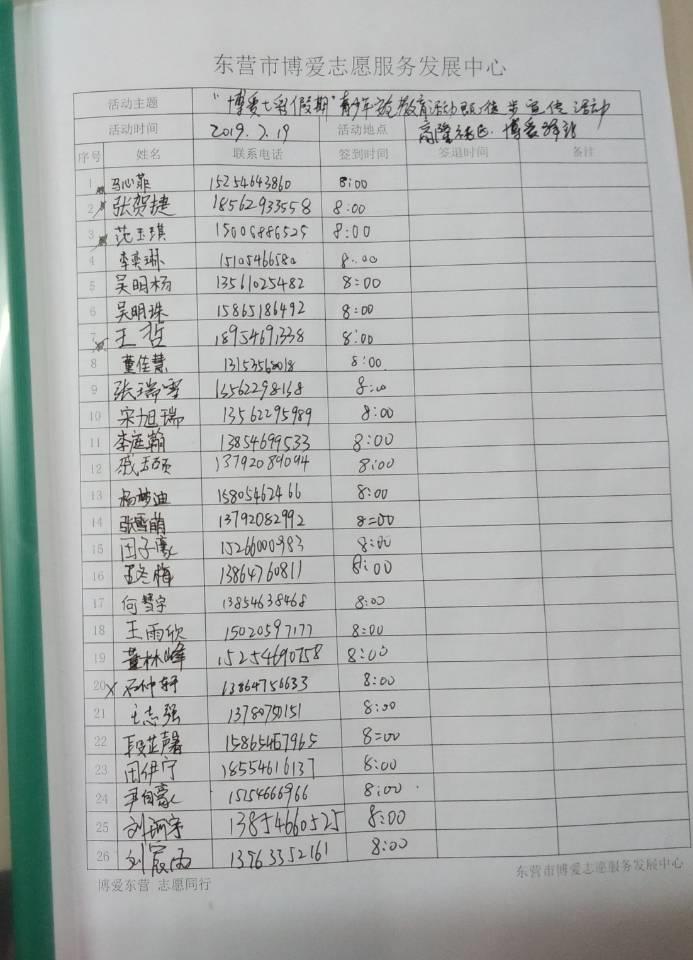 东营市博爱志愿服务发展中心
活动主题 "博爱七彩假期"青少年 教育活动 徒步宣传活动
活动时间 2019.7.19 活动地点 商隆社区·博爱驿站
序号 姓名 联系电话 签到时间 签退时间 备注
1 马心菲 15254643860 8:00
2 张贺捷 18562933558 8:00
3 范玉琪 15006886525 8:00
4 李奕琳 15105466580 8:00
5 吴明杨 13561025482 8:00
6 吴明珠 15865186492 8:00
7 王哲 18954691338 8:00
8 董佳慧 13153568018 8:00
9 张瑞雪 13562298138 8:00
10 宋旭瑞 13562295989 8:00
11 李延翰 13854699533 8:00
12 13792089094 8:00
13 杨梦迪 15805462466 8:00
14 张雪萌 13792082992 8:00
15 田子豪 15266000983 8:00
16 王冬梅 13864760811 8:00
17 何慧宇 13854638468 8:00
18 王雨欣 15020597177 8:00
19 董林峰 15254690758 8:00
20 石仲轩 13864756633 8:00
21 王志强 8:00
22 段芷馨 15865467965 8:00
23 田伊宁 18554616137 8:00
24 尹自豪 15154666966 8:00
25 13854660525 8:00
26 13963352161 8:00
博爱东营 志愿同行 东营市博爱志愿服务发展中心